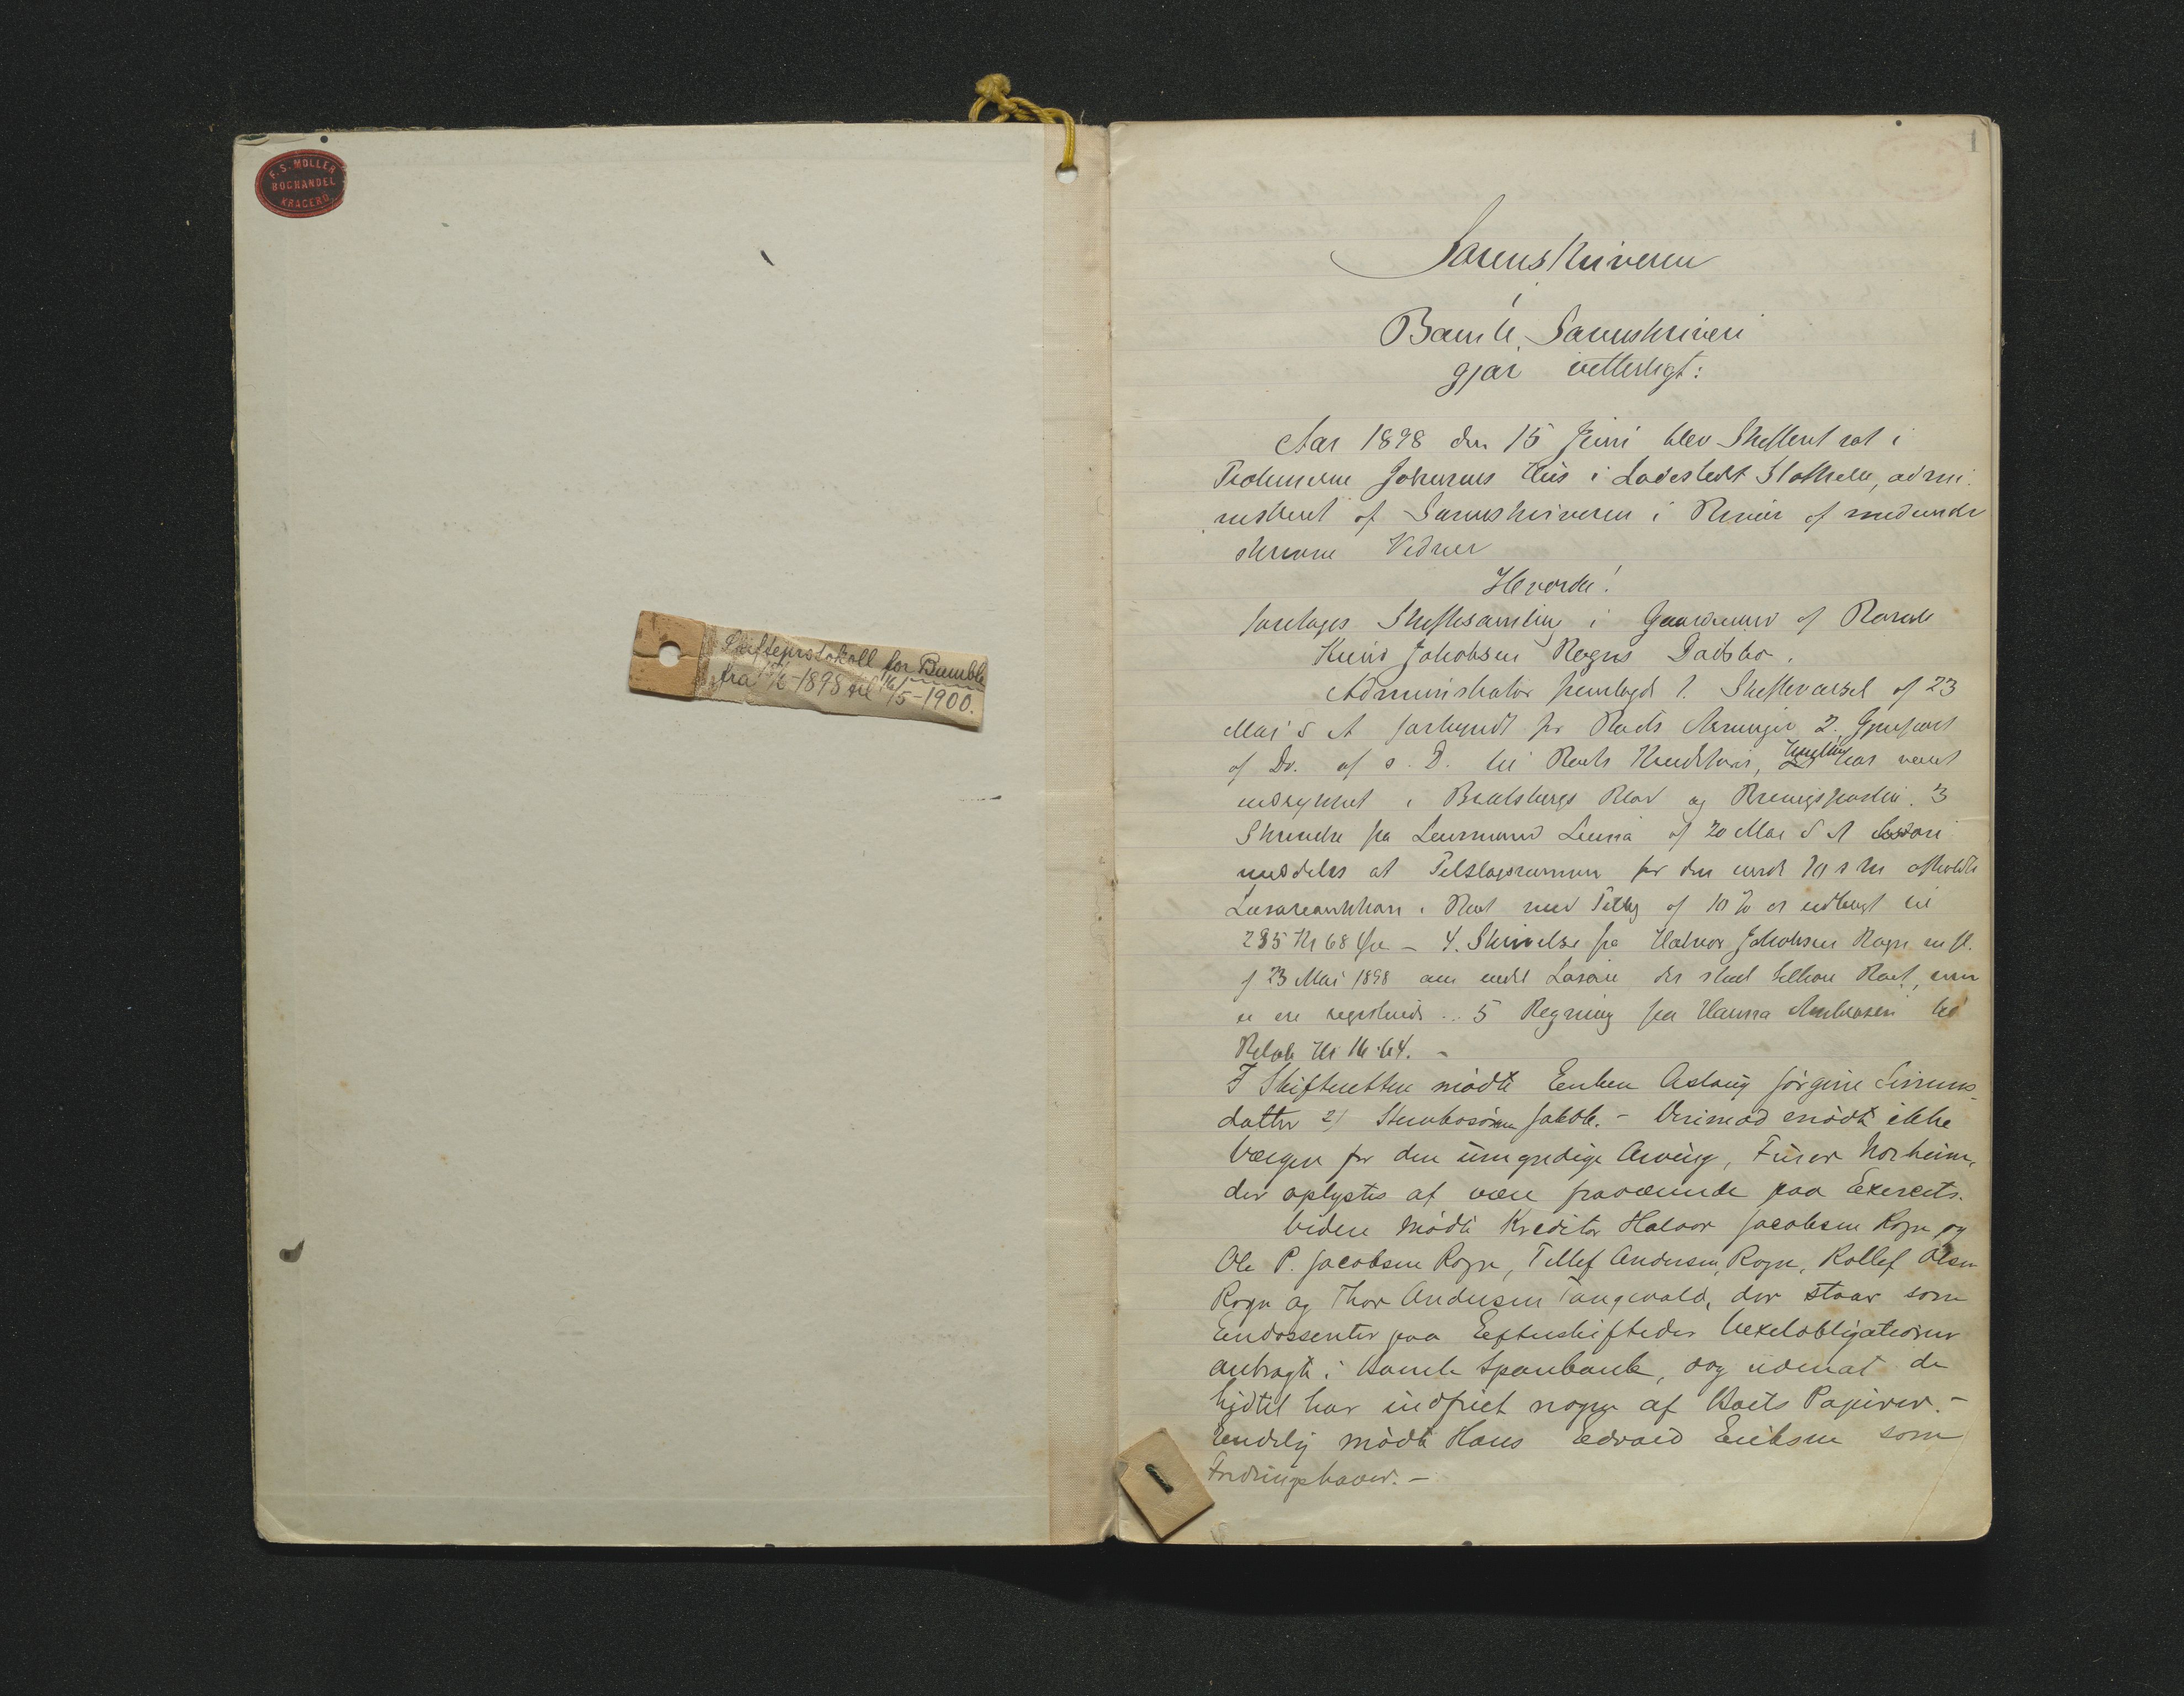 F. S. MÖLLER
BOGHANDEL
KRAGERÖ
Skifteprotokoll for Bamble
fra 15/6-1898 til 16/5-1900.
1
Sorenskriveren
i
Bamle Sorenskriveri
gjør vetterligt:
Aar 1898 den 15 Juni blev Skifteret sat i
Johnsens Hus i Ladestedt Stathelle, admi-
nistreret af Sorenskriveren i Nærvær af medunder
skrevne Vidner
Hvorda!
foretoges Skiftesamling i Gaardmand af Rørholt
Knud Jakobsen Rogns Dødsbo.
Administrator fremlagde 1. Skiftevarsel af 23
Mai d A forkyndt for Boets Arvinger 2. Gjenpart
af Do. af s. D. til Boets Kreditorer, har været
indrykket i Bratsbergs Blad og 3
Skrivelse fra Lensmand af 20 Mai d A hvori
meddeles at Tilslagssummen for den afholdte
Løsøreauktion i Boet med Tillæg af 10 % er udbragt til
285 Kr 68 Øre - 4. Skrivelse fra Halvor Jakobsen Rogn m fl.
af 23 Mai 1898 om endel Løsøre der skal tilhøre Boet, men
ei ere registrerede.. 5 Regning fra Hanna
Beløb Kr 16.64. -
I Skifteretten mødte Enken Aslaug Jørgine Simons-
datter 2) Stervbosønnen Jakob. - Derimod mødte ikke
Værgen for den umyndige Arving, Finer Norheim,
der oplystes at være fraværende paa Exercits.
Videre mødte Kreditor Halvor Jacobsen Rogn og
Ole P. Jacobsen Rogn, Tellef Andersen Rogn, Rollef Olsen
Rogn og Thor Andersen Tangvald, der staar som
Endossenter paa Efterskiftedes Vexelobligationer
anbragte i Bamle Sparebank, dog udenat de
hidtil har indfriet nogen af Boets Papirer. -
Endelig mødte Hans Edvard Eriksen som
Fordringshaver. -